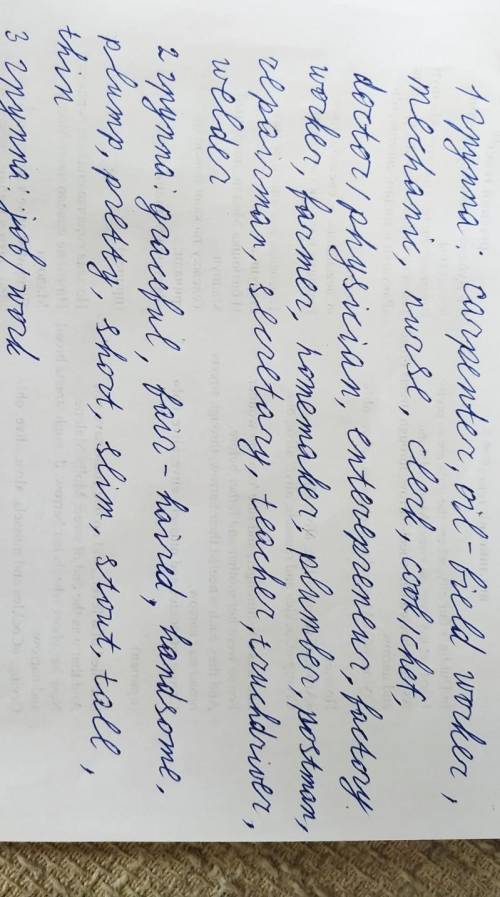 1 группа: carpenter, oil-field worker,
mechanic, nurse, clerk, cook/chef,
doctor/physician, enterepreneur, factory
worker, farmer, homemaker, plumber, postman,
repairman, secretary, teacher, truckdriver,
welder
2 группа: graceful, fair-haired, handsome,
plump, pretty, short, slim, stout, tall,
thin
3 группа: job/work